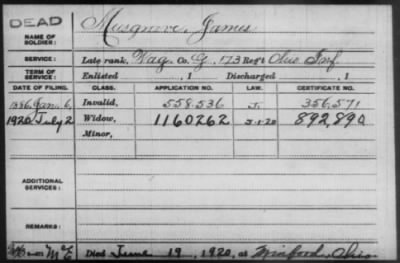 DEAD
NAME OF SOLDIER: Musgrove, James
SERVICE: Late rank, Wag. Co. G, 173 Reg't Ohio Inf.
TERM OF SERVICE: Enlisted , 1 Discharged , 1
DATE OF FILING. CLASS. APPLICATION NO. LAW. CERTIFICATE NO.
1886 Jan. 6, Invalid, 558.536 J. 356,571
1920 July 2 Widow, 1160262 5-1-20 892,890
Minor,
ADDITIONAL SERVICES:
REMARKS:
Died June 19, 1920, at Minford, Ohio